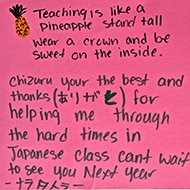 Teaching is like a
Pineapple stand tall
wear a crown and be
sweet on the inside.
Chizuru your the best and
thanks (ありが) for
helping me through
the hard times in
Japanese class cant wait
to see you Next year
-ナラタムラー